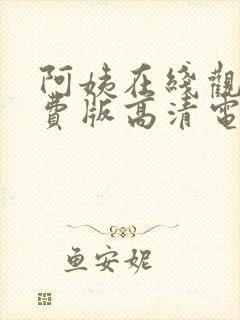 阿姨在綫觀
費版高清電
鱼安妮